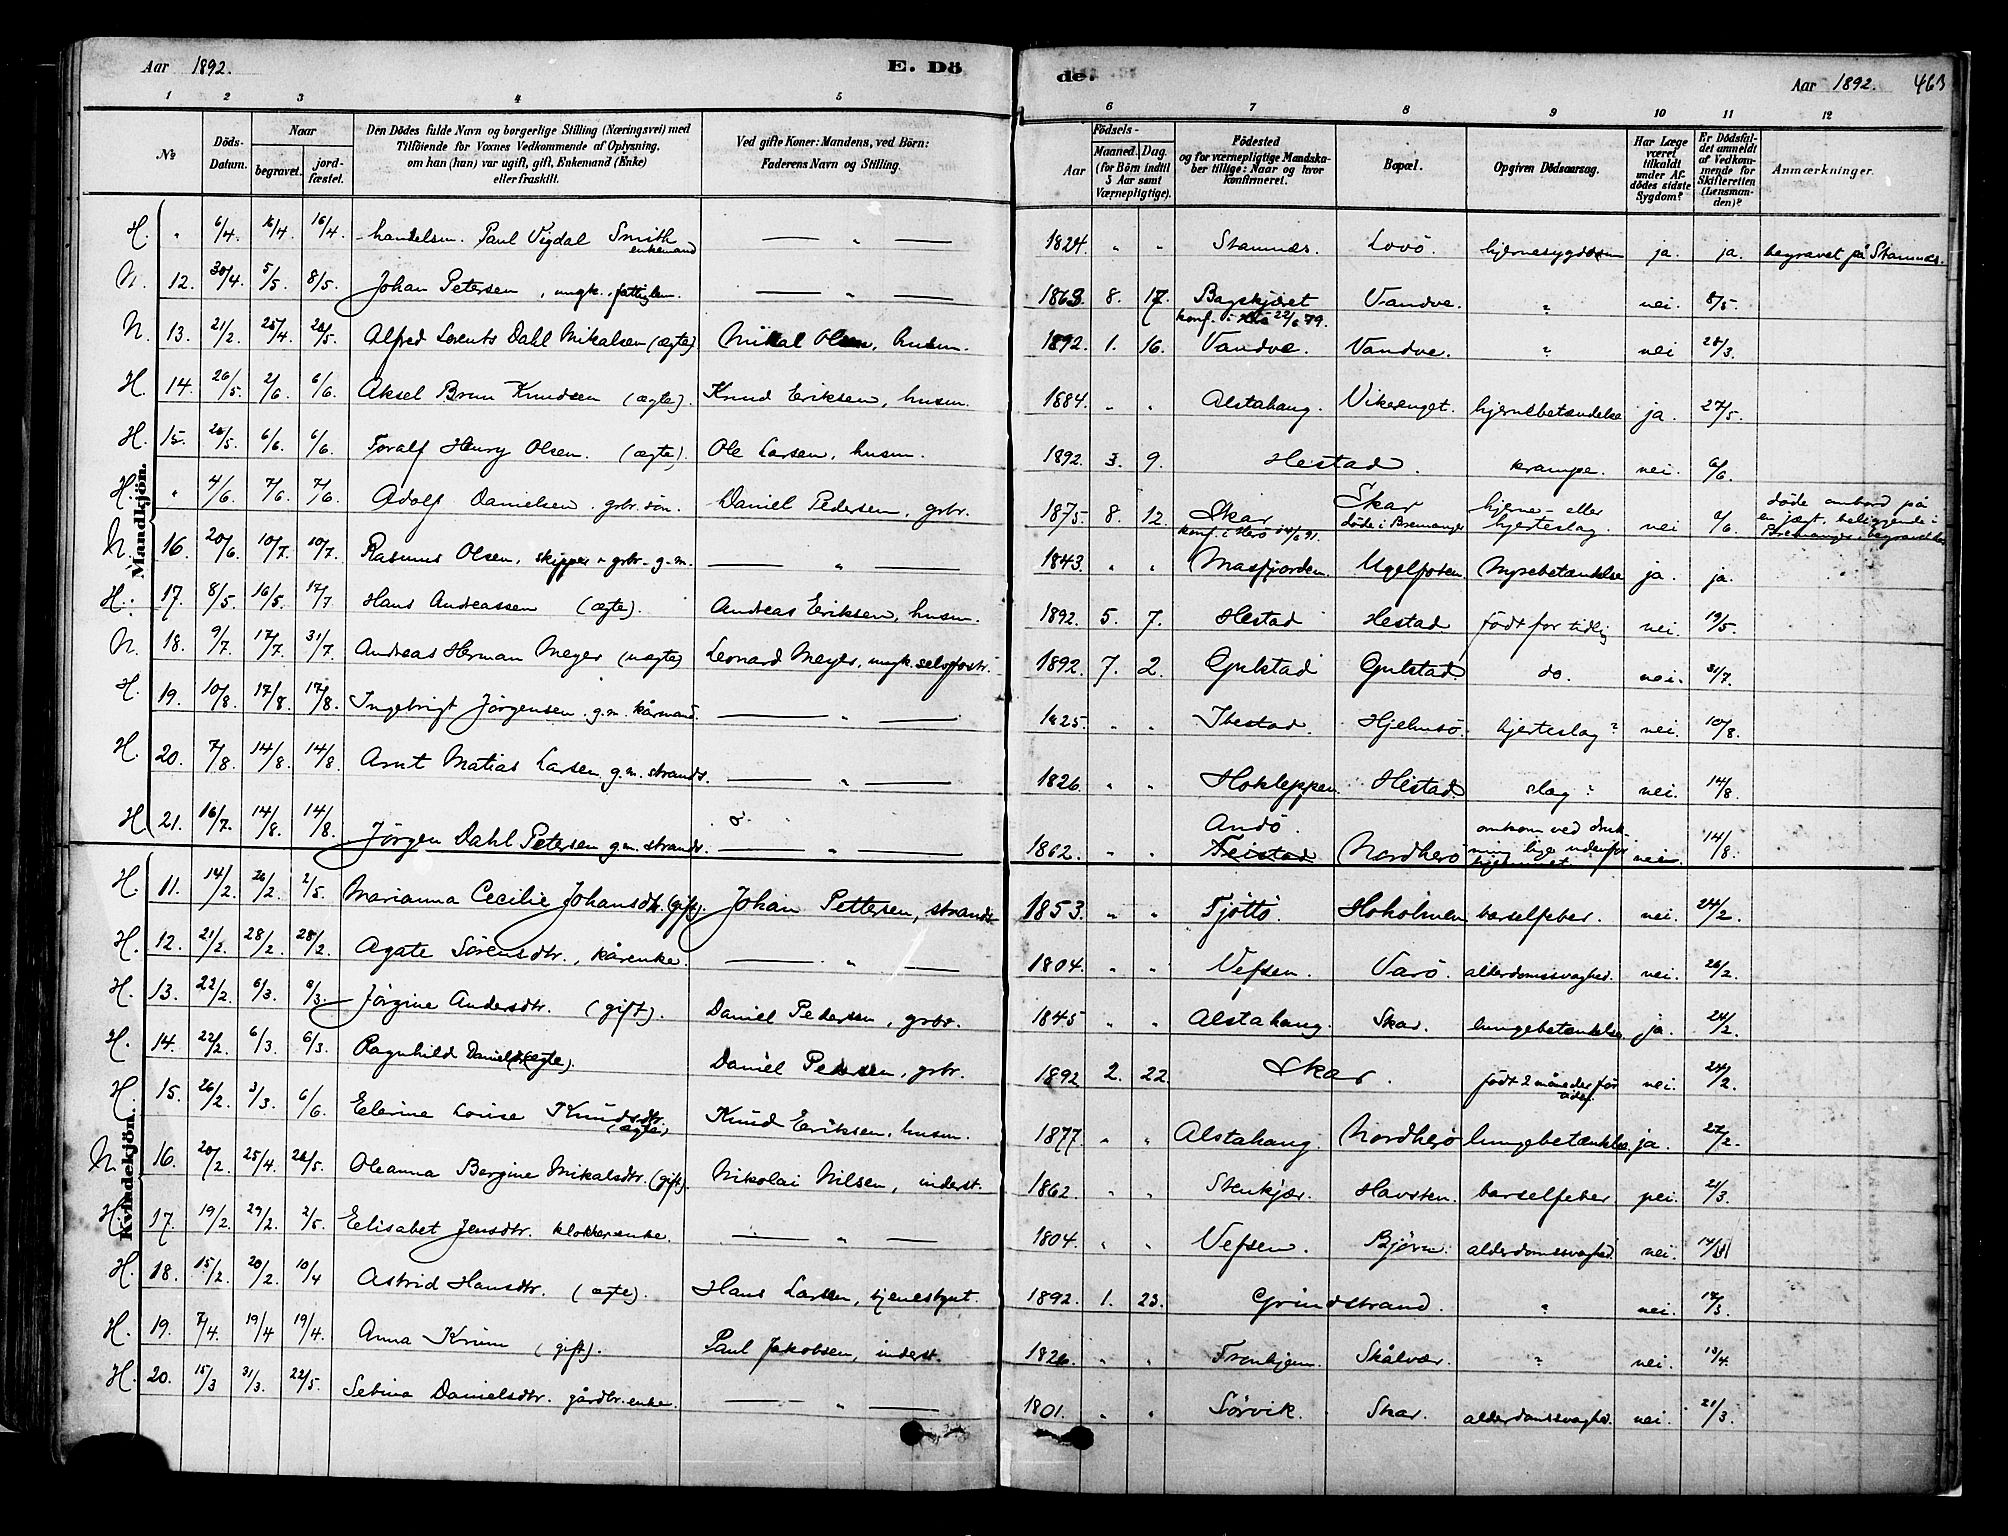 Aar 1892. E. Dö de. Aar 1892. 463
1 2 3 4 5 6 7 8 9 10 11 12
№ Döds-Datum. Naar begravet. jordfæstet. Den Dödes fulde Navn og borgerlige Stilling (Næringsvei) med Tilföiende for Voxnes Vedkommende af Oplysning, om han (hun) var ugift, gift, Enkemand (Enke) eller fraskilt. Ved gifte Koner: Mandens, ved Börn: Faderens Navn og Stilling. Födsels- Aar Maaned. Dag. (for Börn indtil 5 Aar samt Værnepligtige). Födested og for værnepligtige Mandskaber tillige: Naar og hvor konfirmeret. Bopæl. Opgiven Dödsaarsag. Har Læge været tilkaldt under Afdödes sidste Sygdom? Er Dödsfaldet anmeldt af Vedkommende for Skifteretten (Lensmanden)? Anmærkninger.
Mandkjön.
H. " 6/4. 16/4. 16/4. handelsm. Paul Vigdal Smith enkemand — " — 1824 " " Stamnes. Lovö. hjernesygdom ja. ja. begravet på Stamnes.
N. 12. 30/4. 5/5. 8/5. Johan Petersen, ungk. fattiglem. — " — 1863 8. 17 Bagskjæret Vandve. " nei 8/5.
konf. i 22/6 79.
N. 13. 21/2. 25/4. 28/5. Alfred Lorents Dahl Mikalsen (ægte) Mikal Olsen, husm. 1892. 1. 16. Vandve. Vandve. " nei 28/3.
H. 14. 26/5. 2/6. 6/6. Aksel Brun Knudsen (ægte). Knud Eriksen, husm. 1884. " " Alstahaug. Vikerenget. hjernebetændelse ja. 27/5.
H. 15. 26/5. 6/6. 6/6. Toralf Henry Olsen. (ægte). Ole Larsen, husm. 1892 3. 9. Hestad. krampe. nei. 6/6.
H. " 4/6. 7/6. 7/6. Adolf Danielsen. grbr. sön. Daniel Pedersen, grbr. 1875. 8. 12. Skar Skar hjerne- eller hjerteslag. nei 6/6. döde ombord på en jægt, beliggende i
konf. i Herö 14/6 91. döde i Bremanger
N. 16. 20/6. 10/7. 10/7. Rasmus Olsen, skipper & grbr. g.m. — " — 1843. " " Masfjorden. Ugelfosen. Nyrebetændelse ja. ja.
H. 17. 8/5. 16/5. 17/7 Hans Andreassen (ægte). Andreas Eriksen, husm. 1892. 5. 7. Hestad Hestad födt for tidlig nei. 19/5.
N. 18. 9/7. 17/7. 31/7. Andreas Herman Meyer (uægte) Leonard Meyer, ungk. selvforstr. 1892 7. 2. Gulstad Gulstad. do. nei. 31/7.
H. 19. 10/8. 17/8. 17/8. Ingebrigt Jörgensen. g.m. kårmand. — " — 1825. " " Ibestad. Hjelmsö. hjerteslag? nei. 10/8.
H. 20. 7/8. 14/8. 14/8. Arnt Matias Larsen g.m. strands. — " — 1826. " " Hokleppen. Hestad. slag? nei. 14/8.
H 21. 16/7. 14/8. 14/8. Jörgen Dahl Petersen g.m. strands. — " — 1862. " " Andö. Feistad Nordherö omkom ved drukning lige udenfor nei. 14/8.
Kvindekjön.
H. 11. 14/2. 26/2. 2/5. Marianna Cecilie Johansdtr. (gift). Johan Pettersen, strands 1853. " " Tjöttö. Hoholmen barselfeber. nei. 24/2.
H. 12. 21/2. 28/2. 28/2. Agate Sörensdtr., kårenke. — " — 1804. " " Vefsen. Varö. alderdomssvaghed. nei. 26/2.
H. 13. 22/2. 6/3. 6/3. Jörgine Andersdtr. (gift). Daniel Pedersen, grbr. 1845 " " Alstahaug. Skar. lungebetændelse ja. 24/2.
H. 14. 22/2. 6/3. 6/3. Ragnhild Danielsd. (ægte). Daniel Pedersen, grbr. 1892 2. 22. Skar. födt 2 måneder för tiden. nei. 24/2.
H. 15. 26/2. 3/3. 6/6. Elerine Louise Knudsdtr. (ægte) Knud Eriksen, husm. 1877. " " Alstahaug. Nordherö lungebetændelse ja. 27/2.
N 16. 20/2. 25/4. 28/5. Oleanna Bergine Mikalsdtr. (gift). Nikolai Nilsen, inderst. 1862. " " Stenkjær. Havsten. barselfeber nei. 21/3.
H. 17. 19/2. 29/2. 2/5. Elisabet Jensdtr. klokkerenke. — " — 1804. " " Vefsen. Björn. alderdomssvaghed nei.
H. 18. 15/2. 20/2. 10/4 Astrid Hansdtr. (ægte). Hans Larsen, tjenestgut. 1892. 1. 23. Grindstrand. " nei.
H. 19. 7/4. 19/4 19/4. Anna Krum (gift). Paul Jakobsen, inderst. 1826. " " Tronhjem. Skålvær. " nei. 13/4.
H. 20. 15/3 31/3. 22/5. Sebina Danielsdtr. gårdbr.enke. — " — 1801. " " Sörvik. Skar. alderdomssvaghed. nei. 21/3.